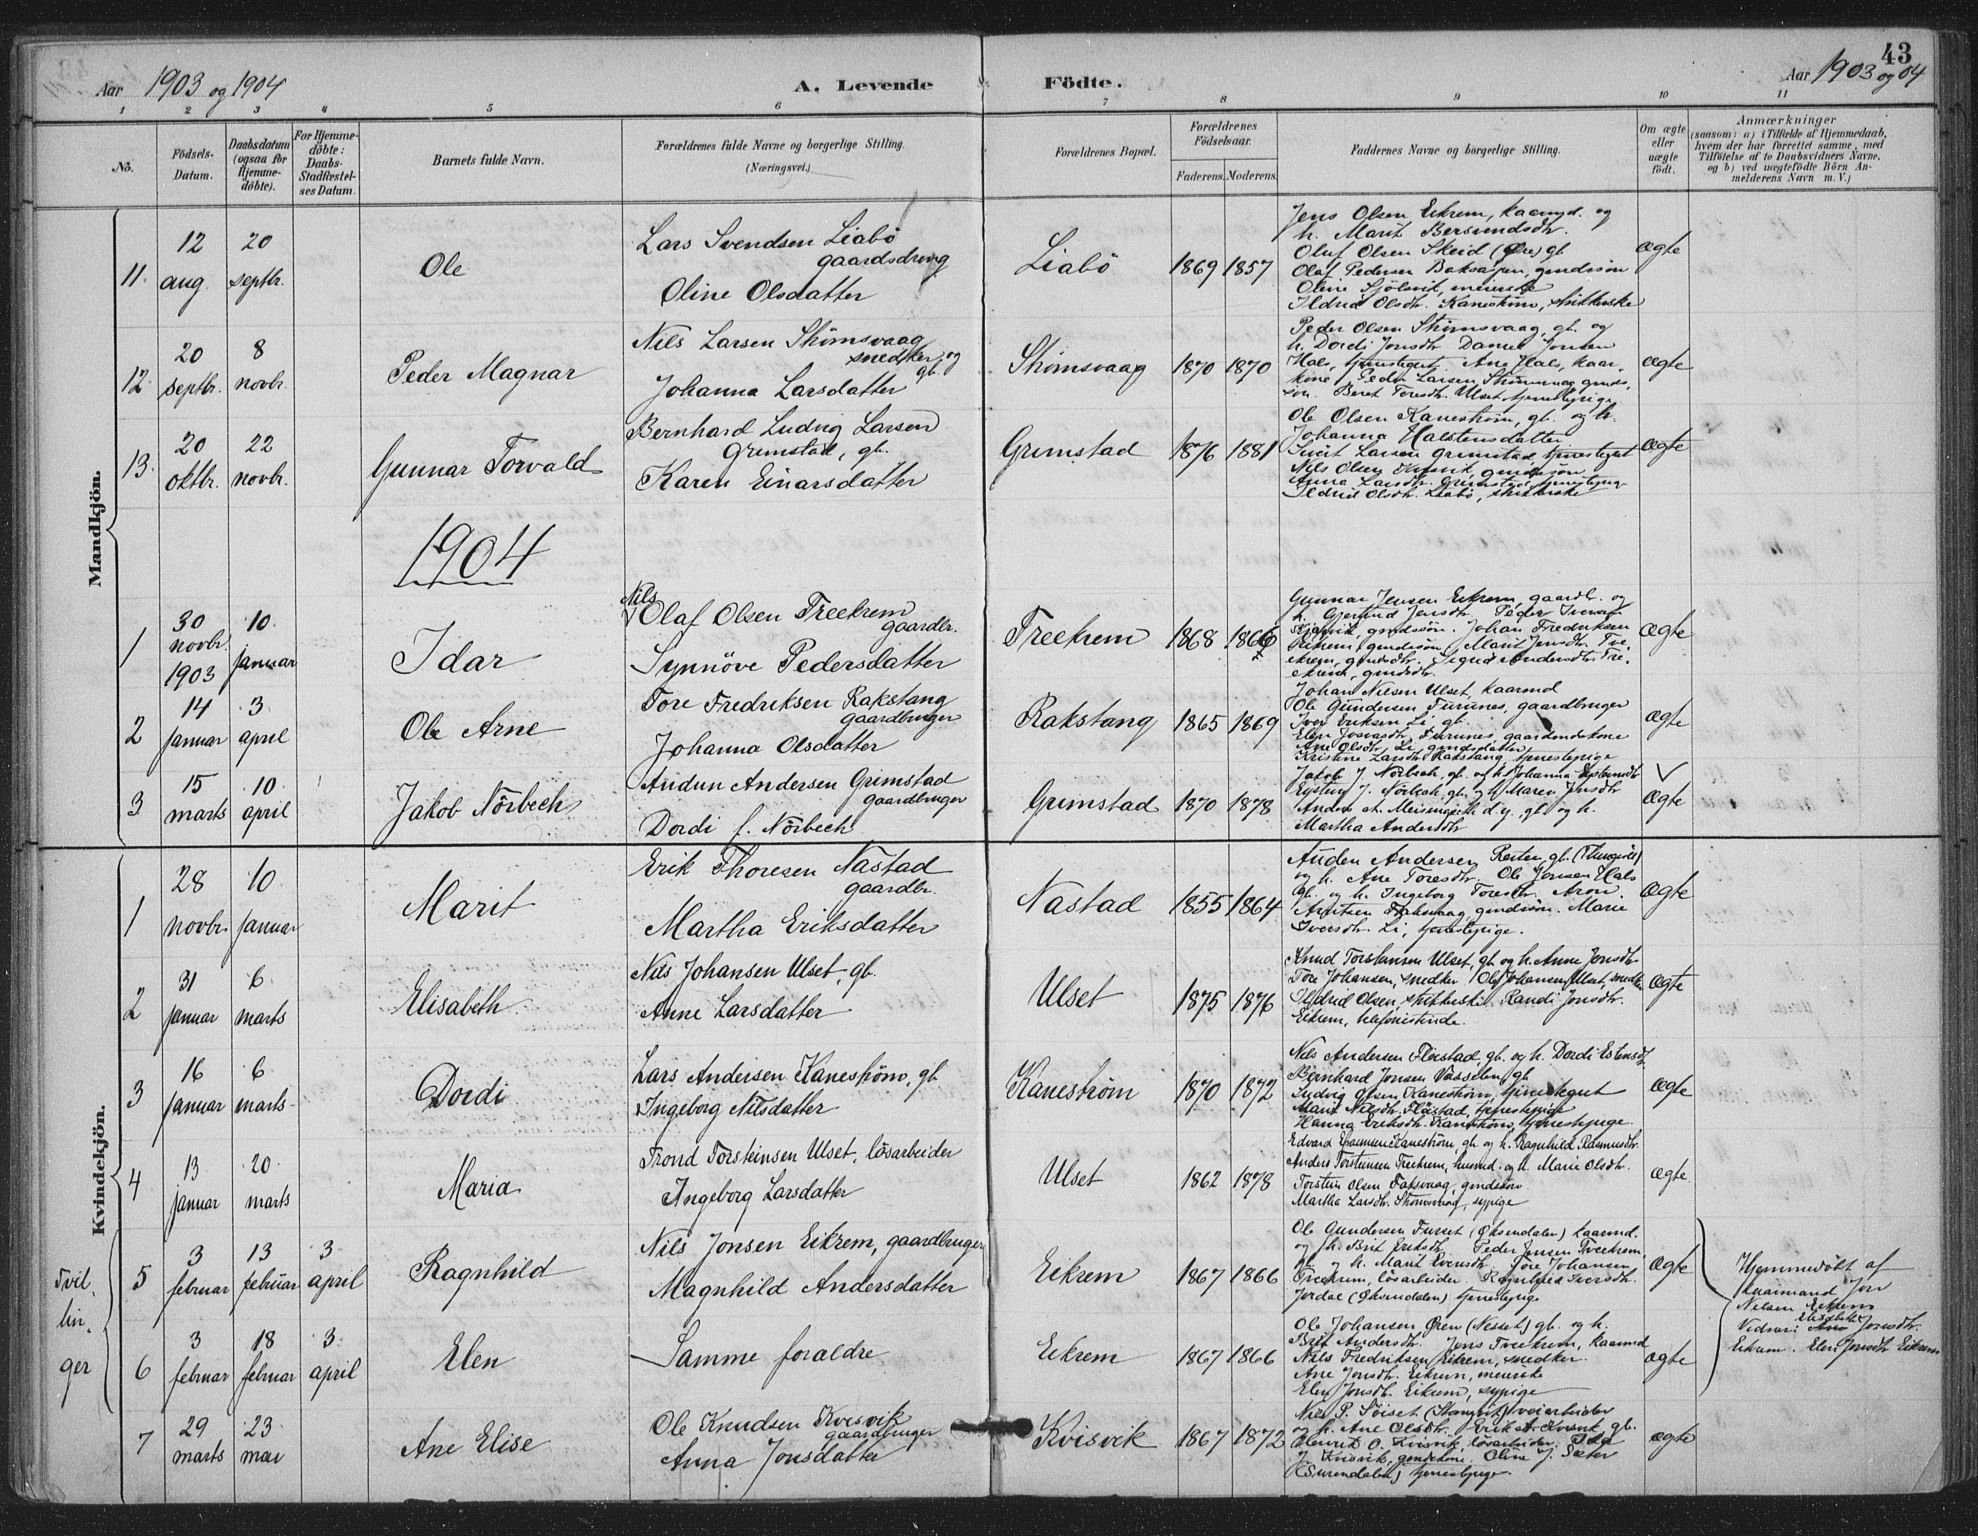 43
Aar 1903 og 1904
A. Levende
Födte.
Aar 1903 og 04
1 2 3 4 5 6 7 8 9 10 11
No.
Födsels-
Datum.
Daabsdatum
(ogsaa for
Hjemme-
döbte).
For Hjemme-
döbte:
Daabs-
Stadfæstel-
ses Datum.
Barnets fulde Navn.
Forældrenes fulde Navne og borgerlige Stilling.
(Næringsvei.)
Forældrenes Bopæl.
Forældrenes
Födselsaar.
Faderens. Moderens.
Faddernes Navne og borgerlige Stilling.
Om ægte
eller
uægte
födt.
Anmærkninger
(saasom: a) i Tilfælde af Hjemmedaab,
hvem der har forrettet samme, med
Tilföielse af to Daabsvidners Navne,
og b) ved uægtefödte Börn An-
melderens Navn m. V.)
Mandkjön.
11. 12 aug. 20 septbr.
Ole
Lars Svendsen Liabö
gaardsdreng
Oline Olsdatter
Liabö
1869 1857
Jens Olsen Eikrem, kaarmd. og
h. Marit Bersvendsdtr.
Oluf Olsen Skeid (Øre) gb
Olaf Pedersen
Oline
Ildrid Olsdtr. Kaneström,
ægte
12. 20 septbr. 8 novbr.
Peder Magnar
Nils Larsen Strömsvaag
snedker og
gb.
Johanna Larsdatter
Strömsvaag
1870 1870
Peder Olsen Strömsvaag, gb. og
h. Dordi Jonsdtr. Daniel Jonsen
Hals, Ane Hals, kaar-
kone Peder Larsen Strömsvaag gmds.
sön. Beret Toresdtr. Ulset tjenestepige
ægte
13. 20 oktbr. 22 novbr.
Gunnar Torvald
Bernhard Ludvig Larsen
Grimstad, gb.
Karen Einarsdatter
Grimstad
1876 1881
Ole Olsen Kaneström, gb. og h.
Johanna Halstensdatter
Sivert Larsen Grimstad tjenestegut
Nils Olsen Kvisvik, gmdssön
Anna Larsdtr. Grimstad tjenestepige
Ildrid Olsdtr. Liabö,
ægte
1904
1 30 novbr. 1903 10. januar
Idar
Nils
Olaf Olsen Treekrem
gaardbr.
Synnöve Pedersdatter
Treekrem
1868 1866
Gunnar Jensen Eikrem, gaardb. og
h. Gjertrud Jensdtr. Peder Iversen
gmdssön. Johan Fredriksen
Eikrem, gmdssön Marit Jensdtr. Tre-
ekrem, gmdsdtr. Sigrid Andersdtr. Tre-
ekrem, gmdsdtr.
ægte
2 14 januar 3 april
Ole Arne
Tore Fredriksen Rakstang
gaardbruger
Johanna Olsdatter
Rakstang
1865 1869
Johan Nilsen Ulset, kaarmd
Ole Gundersen Furunes, gaardbruger
Iver Eriksen Li, gb.
Furunes,
Ane Olsdtr. Li, gmdsdatter
Kristine Larsdtr. Rakstang, tjenestepige
ægte
3 15 marts 10. april
Jakob Nörbech
Audun Andersen Grimstad
gaardbruger
Dordi f. Nörbech
Grimstad
1870 1878
Jakob J. Nörbech, gb. og h. Johanna
J. Nörbech, gb. og h. Maren
Anders A. d.y. gb. og h.
Martha Andersdtr
ægte
Kvindekjön.
1 28 novbr. 10. januar
Marit
Erik Thoresen Nastad
gaardbr.
Martha Eriksdatter
Nastad
1855 1864
Auden Andersen gb.
og h. Ane Toresdtr. Ole Jonsen Hals
gb. og h. Ingeborg Toresdtr. Aron
Arntsen gmdssön. Marie
Iversdtr. Li, tjenestepige.
ægte
2 31 januar 6. marts
Elisabeth
Nils Johansen Ulset, gb.
Anne Larsdatter
Ulset
1875 1876
Knud Torstensen Ulset, gb. og h. Anne Jonsdtr.
Tore Johansen, snedker Ole Johansen Ulset, snedker
Ildrid Olsen, Randi Jonsdtr.
Eikrem, telefonistinde.
ægte
3 16 januar 6 marts
Dordi
Lars Andersen Kaneström, gb.
Ingeborg Nilsdatter
Kaneström
1870 1872
Nils Andersen Flöistad, gb. og h. Dordi
Bernhard Jonsen gb.
Ludvig Olsen Kaneström, tjenestegut
Marit Nilsdtr. Flöistad, tjenestepige
Hanna Eriksdtr. Kaneström, tjenestepige.
ægte
4 13 januar 20. marts
Maria
Trond Torsteinsen Ulset, lösarbeider
Ingeborg Larsdatter
Ulset
1862 1878
Edvard Kaneström, gb. og h. Ragnhild Rasmusdtr.
Anders Torstensen Treekrem, husmd. og h. Marie Olsdtr.
Torstein Olsen gmdssön.
Martha Larsdtr. Strömsvaag, sypige
ægte
Tvil-
lin-
ger
5 3 februar 13 februar 3. april
Ragnhild
Nils Jonsen Eikrem, gaardbruger
Magnhild Andersdatter
Eikrem
1867 1866
Ole Gundersen Furset (Öksendalen) kaarmd.
og h. Brit Eriksdtr. Peder Jensen Treekrem,
gb. og h. Marit Evensdtr. Tore Johansen
Treekrem, lösarbeider. Ragnhild Iversdtr.
Jordal (Öksendalen) tjenestepige
ægte
Hjemmedöbt af
kaarmand Jon
Nilsen Eikrem
Elisabeth
Vidner: Jonsdtr.
Eikrem. Elen Jonsdtr Eikrem
6 3 februar 18 februar 3. april
Elen
Samme foraldre
Eikrem
1867 1866
Ole Johansen Øren (Nesset) gb. og h.
Brit Andersdtr. Jens Treekrem, kaarmd
Nils Fredriksen Eikrem, snedker.
Ane Jonsdtr. Eikrem,
Elen Jonsdtr. Eikrem, sypige
ægte
7 29 marts 23 mai
Ane Elise
Ole Knudsen Kvisvik
gaardbruger
Anna Jonsdatter
Kvisvik
1867 1872
Nils P. Söiset (Stangvik) veiarbeider
og h. Ane Olsdtr. Erik A. Kvisvik gb.
Henrik O. Kvisvik, lösarbeider. Ida
J. Kvisvik, gmdskone. Oline J. Sæter
(Surendalen) tjenestepige
ægte